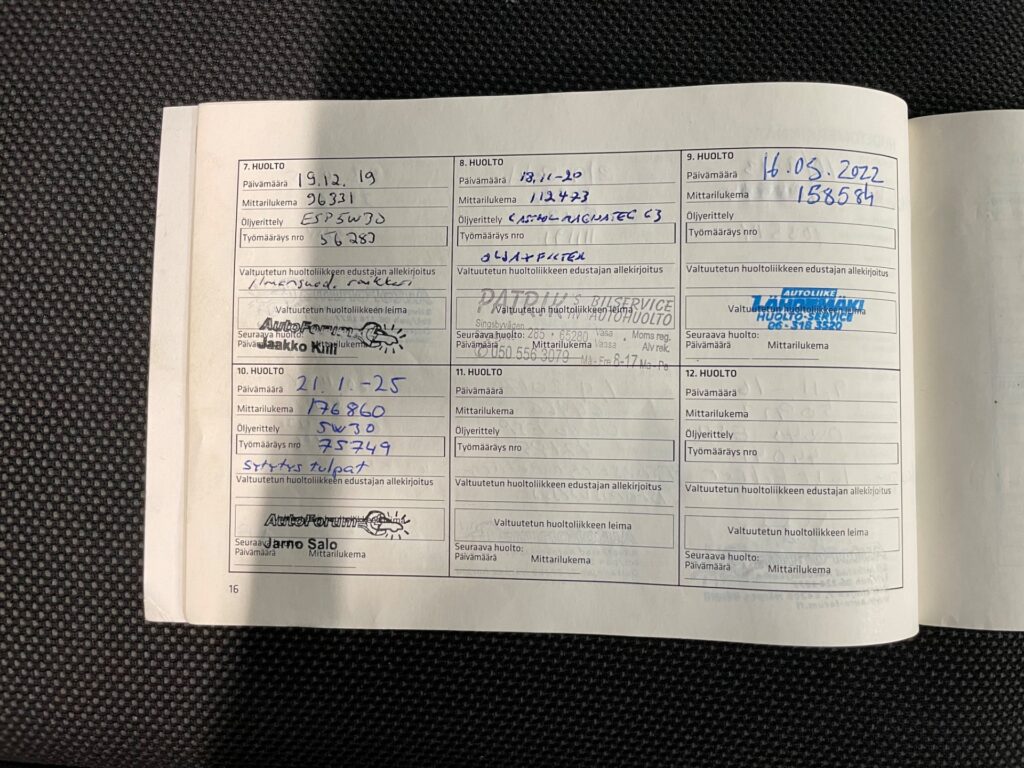 7. HUOLTO
Päivämäärä 19.12. 19
Mittarilukema 96331
Öljyerittely ESP 5W30
Työmääräys nro 56282
Valtuutetun huoltoliikkeen edustajan allekirjoitus
ilmansuod. raikkeri
AutoForum
Jaakko Kiili
Seuraava huolto:
Päivämäärä Mittarilukema
8. HUOLTO
Päivämäärä 18.11-20
Mittarilukema 112473
Öljyerittely CASTROL MAGNATEC C3
Työmääräys nro
ÖLJY + FILTER
Valtuutetun huoltoliikkeen edustajan allekirjoitus
Valtuutetun huoltoliikkeen leima
PATRIK'S BILSERVICE
AUTOHUOLTO
Singsbyvägen 285 • 65280 Vasa Vaasa Moms reg. Alv rek.
Seuraava huolto:
Päivämäärä Mittarilukema
✆ 050 556 3079 Må - Fre 8-17 Ma - Pe
9. HUOLTO
Päivämäärä 16.05.2022
Mittarilukema 158584
Öljyerittely
Työmääräys nro
Valtuutetun huoltoliikkeen edustajan allekirjoitus
Valtuutetun huoltoliikkeen leima
AUTOLIIKE
LÄHDEMÄKI
HUOLTO-SERVICE
06-318 3520
Seuraava huolto:
Päivämäärä Mittarilukema
10. HUOLTO
Päivämäärä 21.1.-25
Mittarilukema 176860
Öljyerittely 5W30
Työmääräys nro 75749
sytytys tulpat
Valtuutetun huoltoliikkeen edustajan allekirjoitus
AutoForum
Jarno Salo
Seuraava huolto:
Päivämäärä Mittarilukema
11. HUOLTO
Päivämäärä
Mittarilukema
Öljyerittely
Työmääräys nro
Valtuutetun huoltoliikkeen edustajan allekirjoitus
Valtuutetun huoltoliikkeen leima
Seuraava huolto:
Päivämäärä Mittarilukema
12. HUOLTO
Päivämäärä
Mittarilukema
Öljyerittely
Työmääräys nro
Valtuutetun huoltoliikkeen edustajan allekirjoitus
Valtuutetun huoltoliikkeen leima
Seuraava huolto:
Päivämäärä Mittarilukema
16